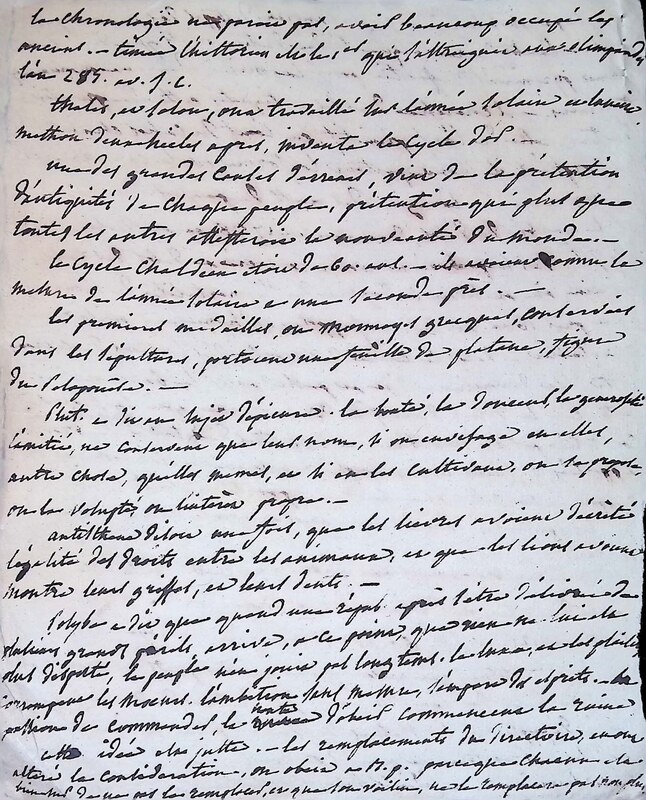 la chronologie ne paroit pas, avoir beaucoup occupé les
anciens. – timée l'historien est le 1er qui s'attreignit aux olimpiades
l'an 285. av. J. C.
thales, et solon, ont travaillé sur l'année solaire et lunaire
methon deux siecles après, inventa le Cycle d'or. –
une des grandes causes d'erreurs, vient de la prétention
d'antiquité de chaque peuple, prétention que plus
toutes les autres attesteroit la nouveauté du monde. –
le Cycle Chaldéen étoit de 60. ans. – ils avoient connu la
mesure de l'année solaire a une seconde près. –
les premieres médailles, ou monnoyes grecques, conservées
dans les sépultures, portoient une feuille de platane, figure
du Peloponèse. –
Plut. a dit au sujet d'épicure. la bonté, la douceur, la generosité
l'amitié, ne conservent que leur nom, si on envisage en elles,
autre chose, qu'elles memes, et si en les cultivant, on se propose
ou la volupté, ou l'interêt propre. –
antisthene disoit une fois, que les lievres avoient décrété
l'égalité des droits entre les animaux, et que les lions avoient
montré leurs griffes, et leurs dents. –
Polybe a dit que quand une répub. après s'être délivrée de
plusieurs grands perils, arrive, a ce point, que rien ne lui est
plus disputé, le peuple n'en jouit pas longtems. le luxe, et les plaisirs
corrompent les moeurs. l'ambition sans mesure, s'empare des esprits. – la
passion de commander, la honte d'obéir commencent la ruine
cette idée est juste. – les remplacements du Directoire, en ont
altéré la considération, on obéit a parceque chacun est
bien sur de ne pas le remplacer, et que son voisin, ne le remplacera pas non plus